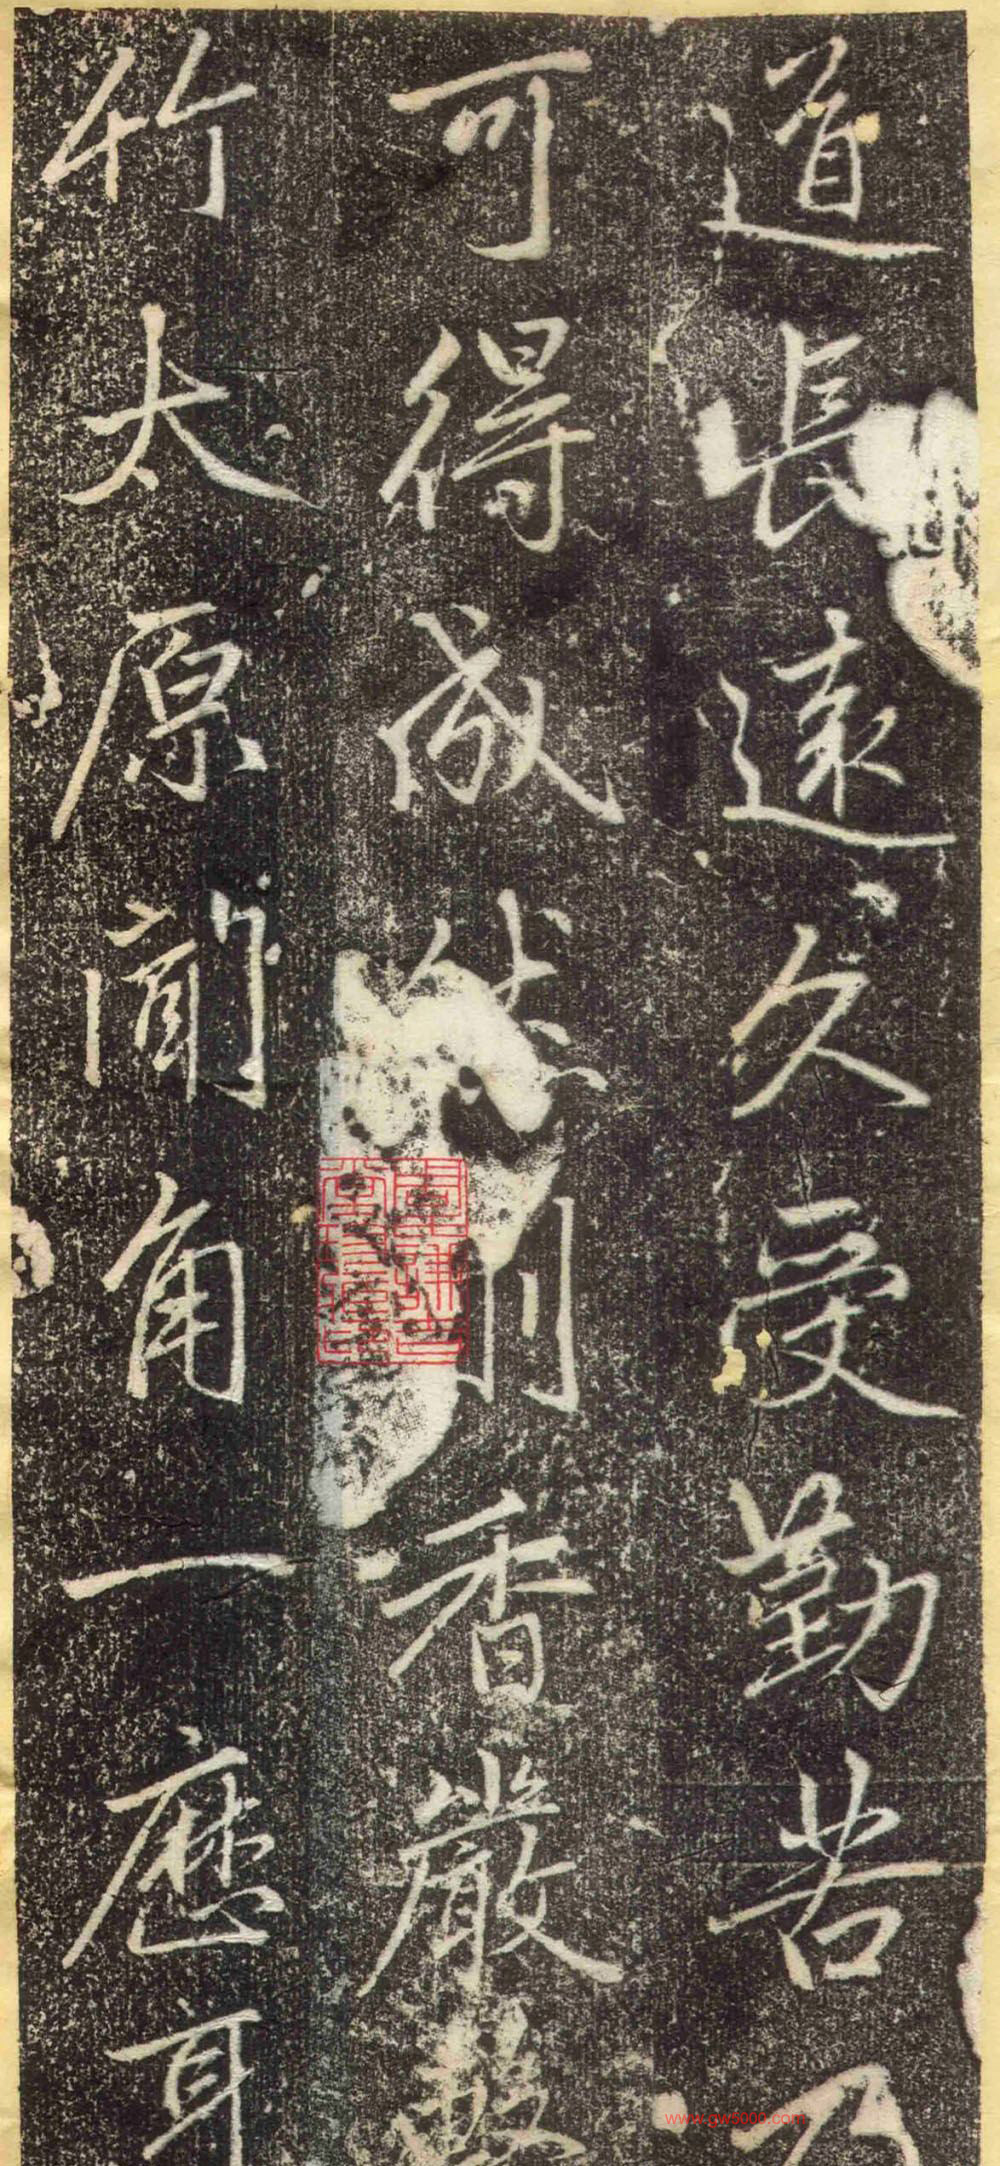 道長遠久受勤苦乃
可得成然則香嚴擊
竹太原聞角一歷耳
www.gw5000.com